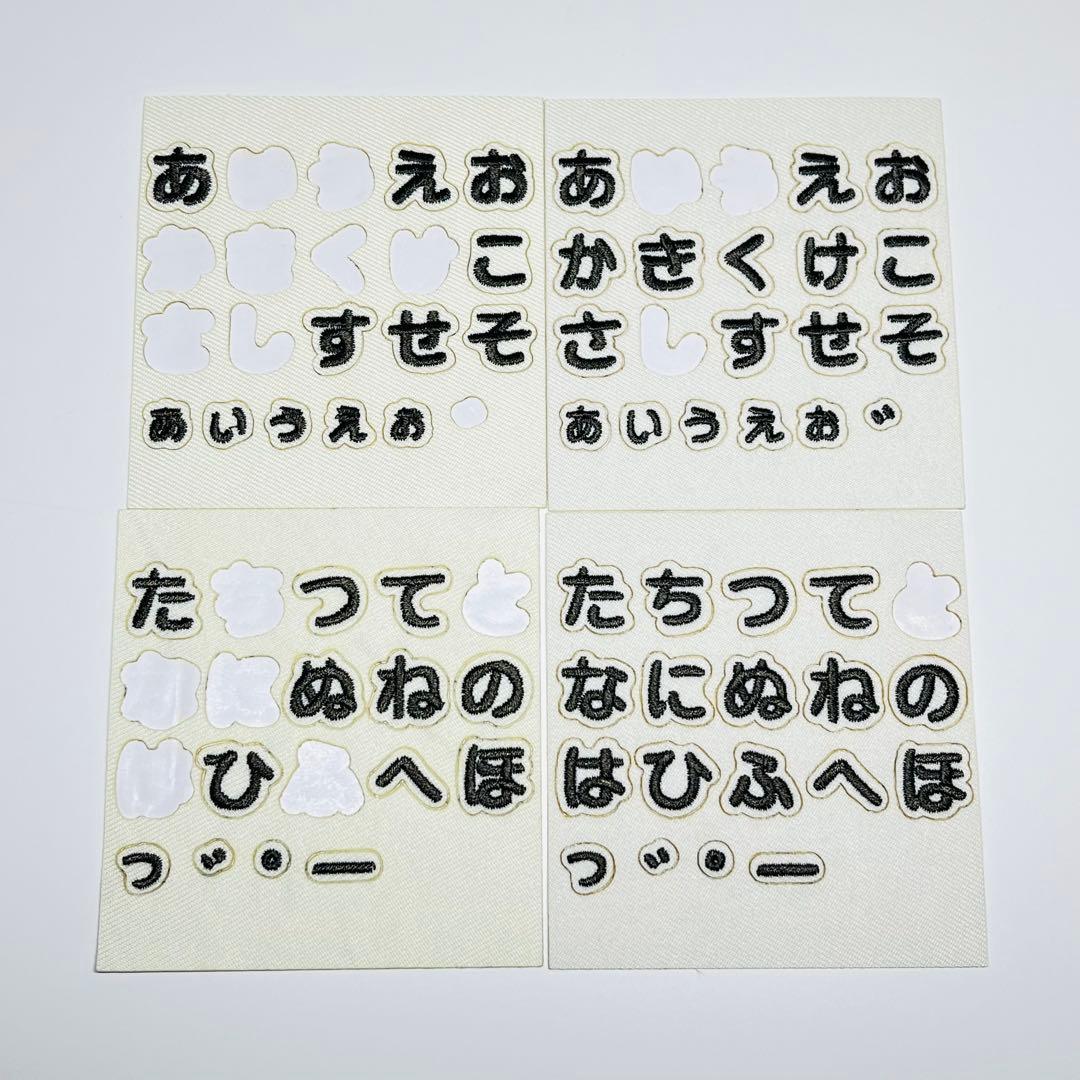 あ え お
こ
す せ そ
ぁ ぃ ぅ ぇ ぉ
あ え お
か き く け こ
さ す せ そ
ぁ ぃ ぅ ぇ ぉ ゛
た つ て
ぬ ね の
ひ へ ほ
っ ゛ ゜ ー
た ち つ て
な に ぬ ね の
は ひ ふ へ ほ
っ ゛ ゜ ー